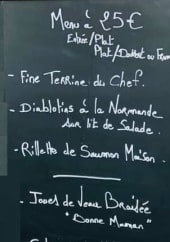 Menu à 25€
Entrée/Plat
Plat/Dessert ou From
- Fine Terrine du Chef.
- Diablotins à la Normande
sur lit de Salade.
- Rillettes de Saumon Maison.
- Joues de Veau Braisée
"Bonne Maman"